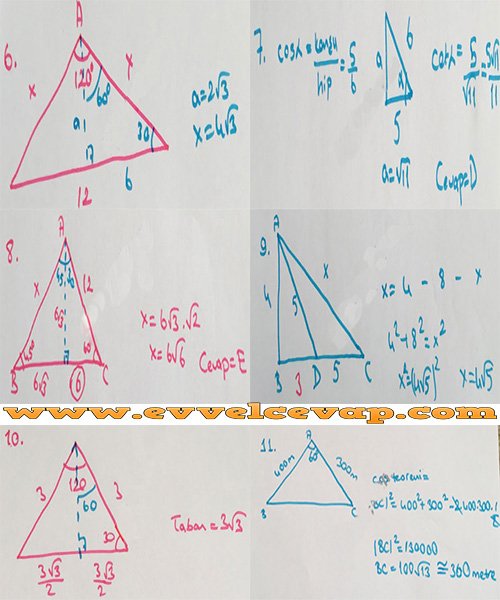 6.
A
120°
x
x
60°
a
30
6
12
a=2√3
x=4√3
7. cosx = komşu/hip = 5/6
a
6
x
5
cotx = 5/√11 = 5√11/11
a=√11
Cevap=D
8.
A
45
30
x
12
6√3
45°
60
B
6√3
6
C
x=6√3.√2
x=6√6
Cevap=E
9.
A
4
5
x
B
3
D
5
C
x= 4 - 8 - x
4²+8²=x²
x²=(4√5)²
x=4√5
www.evvelcevap.com
10.
3
3
120
60
30
3√3/2
3√3/2
Taban=3√3
11.
A
400m
60°
300m
B
C
cos teoremi=
|BC|²=400²+300²-2.400.300.1/2
|BC|²=130000
BC=100√13 ≅ 360 metre